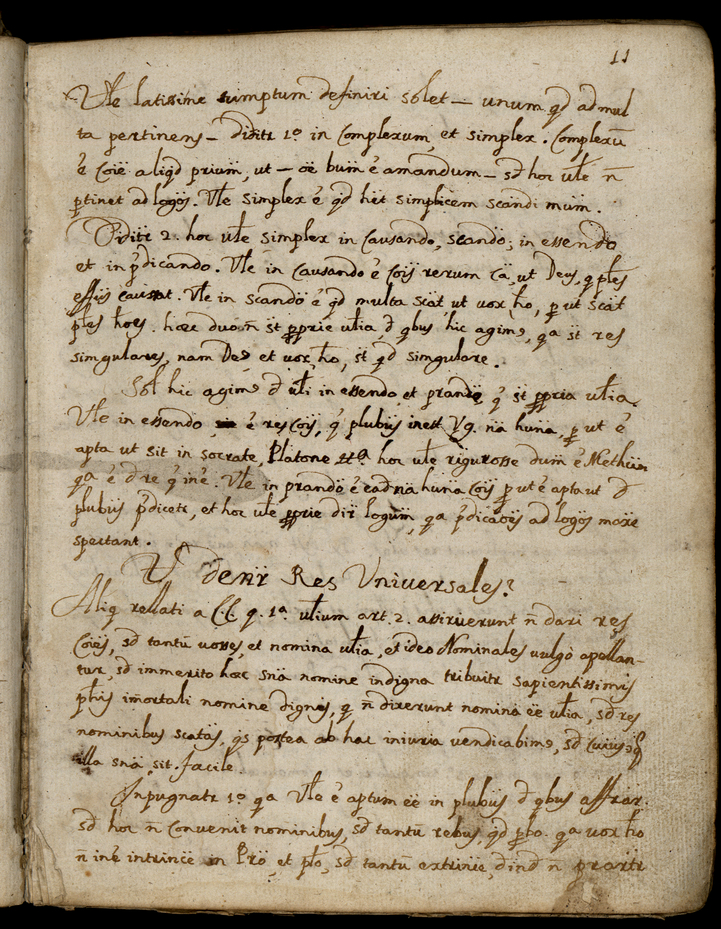 11
Vle latissime sumptum definiri solet – unum qd ad mul
ta pertinens – diditr 1º in Complexum et simplex. Complexū
ē Coīē aliqd prium, ut – oē bum ē amandum – sd hoc ule n̄
ptinet ad logos. Vle simplex ē qd hēt simplicem scandi mum.
Diditr 2. hoc ule simplex in Causando, scando, in essendo
et in p̄dicando. Vle in Causando ē Coīs rerum Cā, ut Deus, q ples
effūs causat. Vle in scando ē qd multa scāt ut vox ho, p ut scāt
ples hoēs. haec duo n̄ st pprie ulia, d qbus hic agim9, qa st res
simgulares, nam De9 et vox, ho, st qd simgulare.
Sol hic agim9 d uli in essendo et prando, q̄ st ppria ulia.
Vle in essendo ē res Coīs, q̄ plubus inest Vg. nā hunā, p ut ē
apta ut sit in socrate, Platone hoc ule rigurosse dum ē Methiam
qa ē d re q̄ inē. Vle in prando ē ead nā hunā Coīs p ut ē apta ut d
plubus p̄dicetr, et hoc ule pprie dir logum, qa p̄dicatoēs ad logos maxe
spectant.
V denr Res Universales?
Aliq rellati a CC. q. 1ª ulium art. 2. assiruerunt n̄ dari res
Coīes, sd tantū voses, et nomina ulia, et ideo Nominales vulgò apellan-
tur, sd immerito haec snā nomine indigna tribuitr sapientissimis
phis imortali nomine dignis, q n̄ dixerunt nomina ēē ulia, sd res
nominibus scatas, qs postea ab hac iniuria vendicabim9, sd Cuius
illa snā, sit. facile
Inpugnatr 1º qa Vle ē aptum ēē in plubus d qbus affrar.
sd hoc n̄ Convenit nominibus, sd tantū rebus, qd pbo. qa vox ho
n̄ inē intrinCē in Pro, et plo, sd tantū extrinCē, d ind n̄ prartr